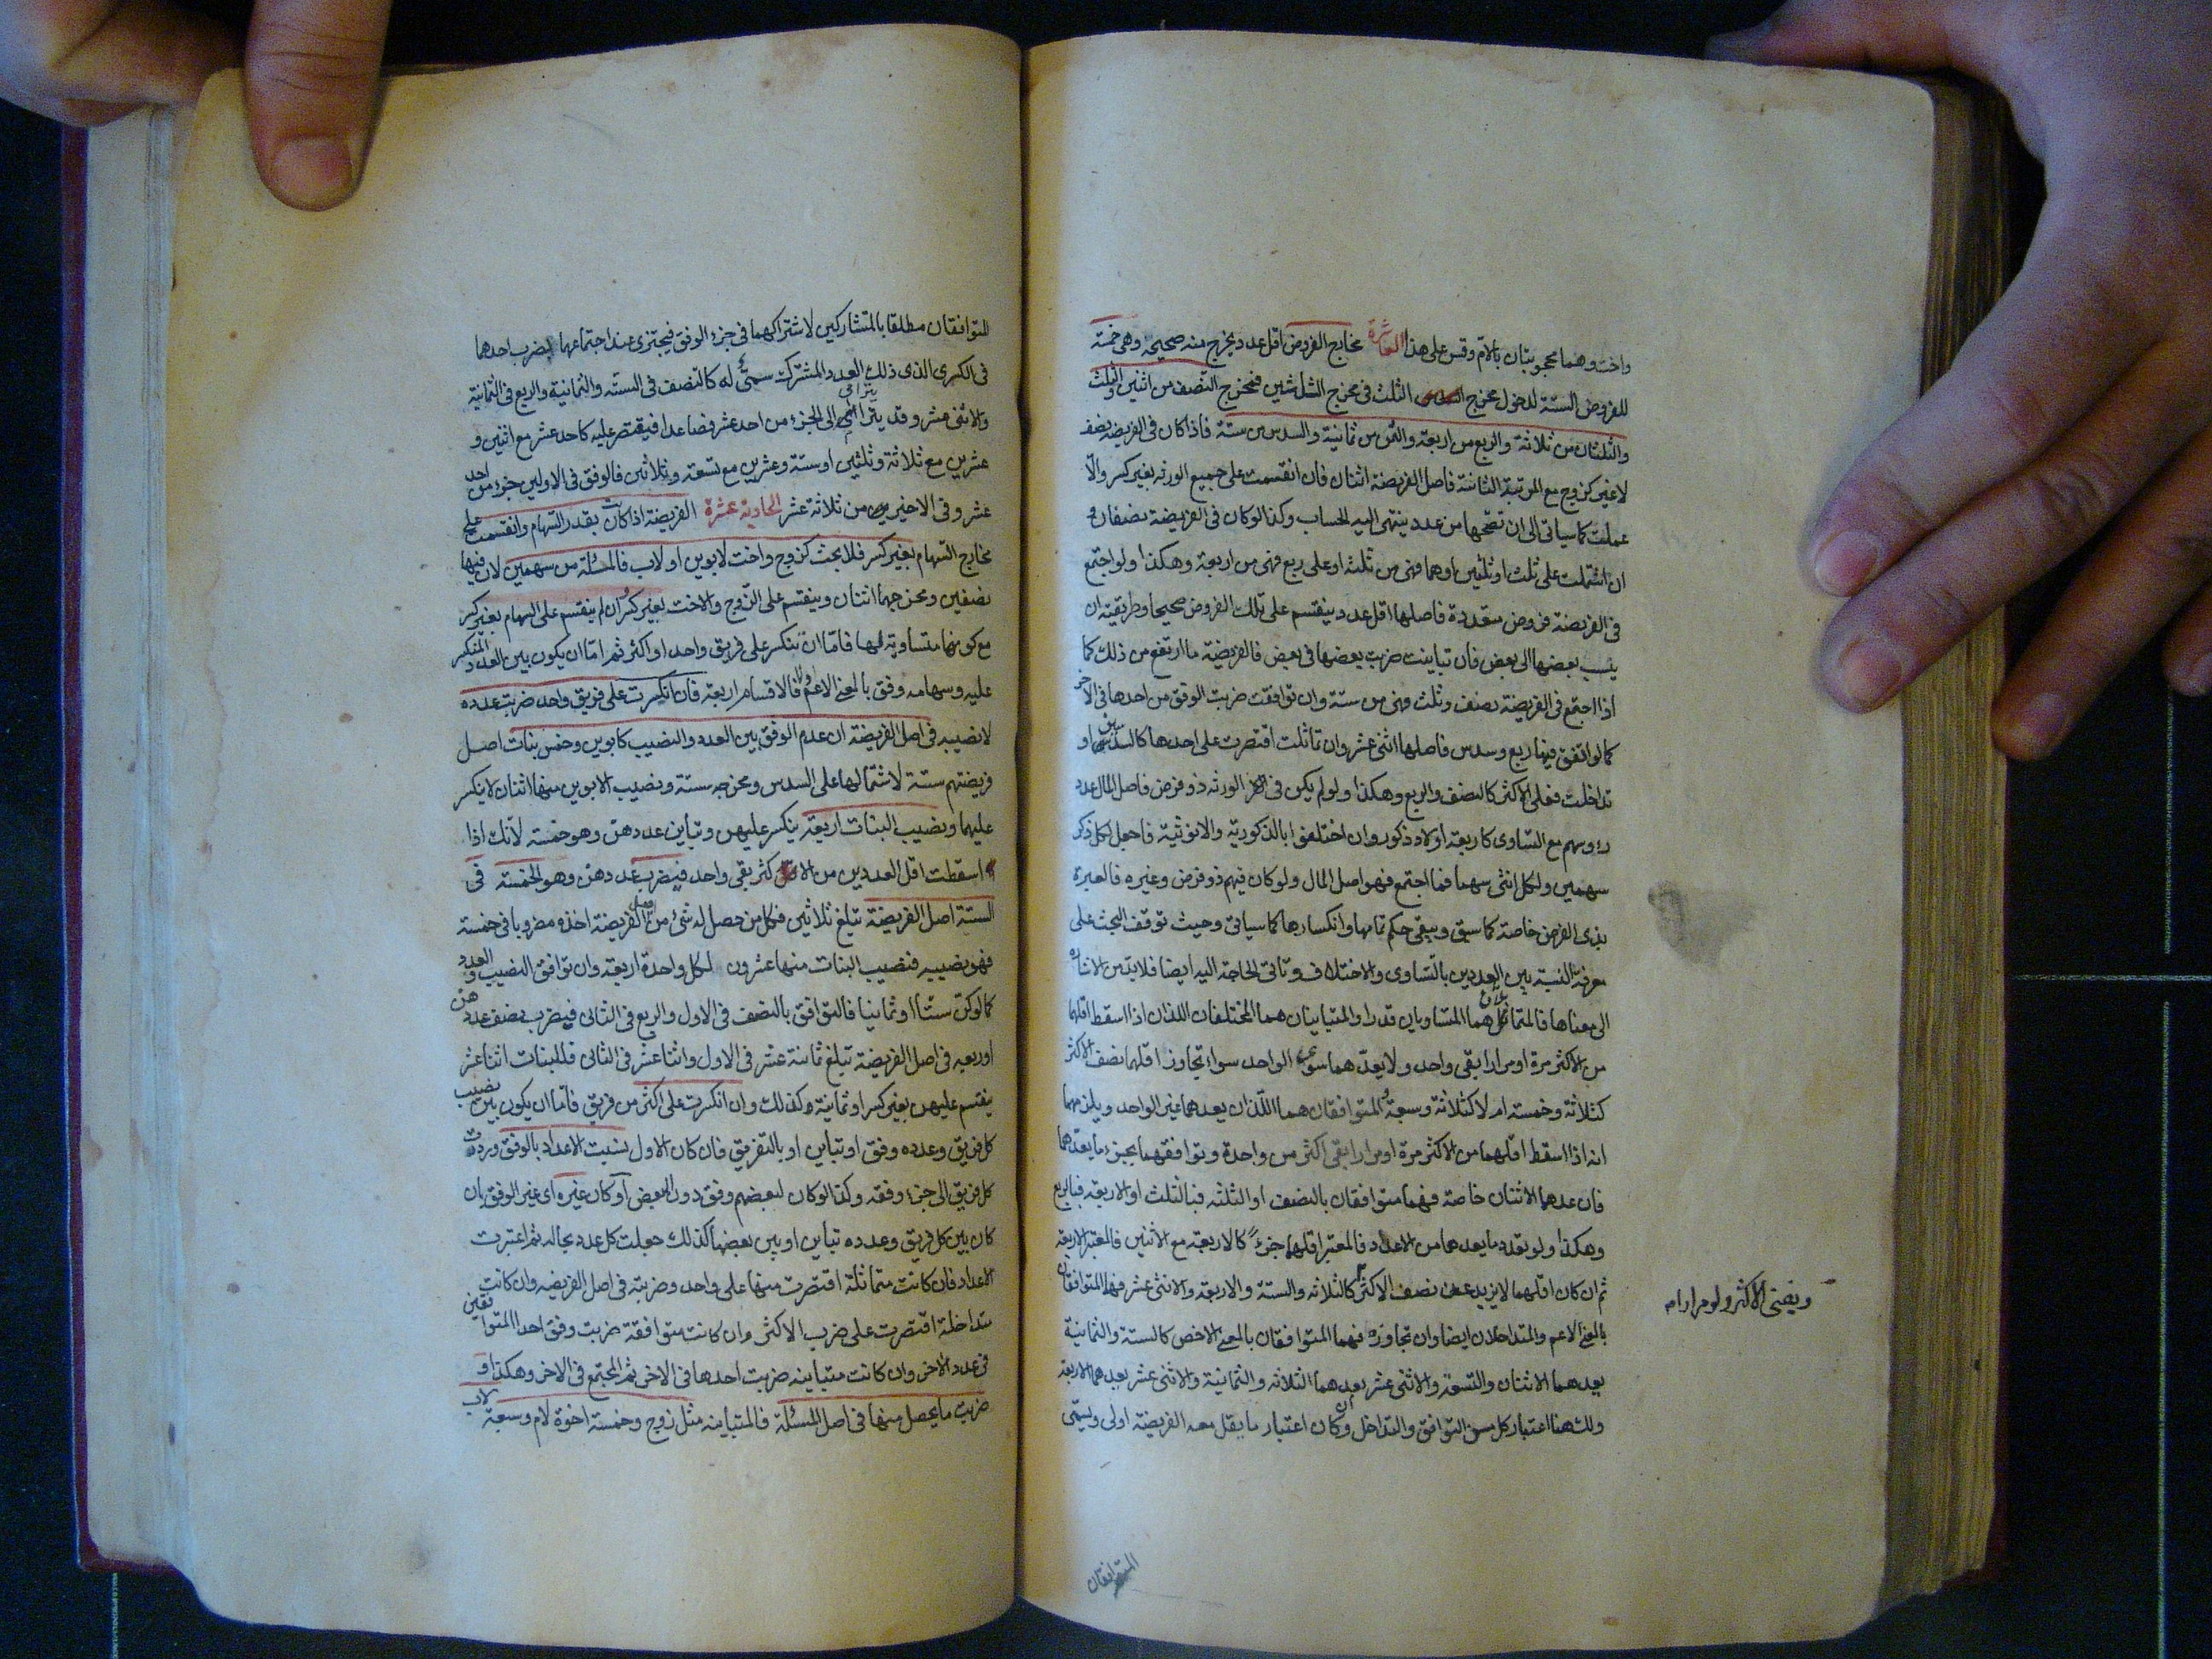 واخت وهما محجوبتان بالام وقس على هذا العاشرة مخارج الفروض اقل عدد يخرج منه صحيحة وهى خمسة
للفروض الستة لدخول مخرج الثلث فى مخرج الثلثين فمخرج النصف من اثنين والثلث
والثلثان من ثلاثة والربع من اربعة والثمن من ثمانية والسدس من ستة فاذا كان فى الفريضة نصف
لا غير كزوج مع المرتبة الثانية فاصل الفريضة اثنان فان انقسمت على جميع الورثه بغير كسر والا
عملت كما سياتى الى ان تصححها من عدد ينتهى اليه الحساب وكذا لو كان فى الفريضة نصفان و
ان اشتملت على ثلث او ثلثين او هما فهى من ثلثه او على ربع فهى من اربعة وهكذا ولو اجتمع
فى الفريضة فروض متعددة فاصلها اقل عدد ينقسم على تلك الفروض صحيحا وطريقه ان
ينسب بعضها الى بعض فان تباينت ضرب بعضها فى بعض فالفريضة ما ارتفع من ذلك كما
اذا اجتمع فى الفريضة نصف وثلث فهى من ستة وان توافقت ضربت الوفق من احدها فى الاخر
كما لو اتفق فيها ربع وسدس فاصلها اثنى عشر وان تماثلت اقتصرت على احدها كالسدسين او
تداخلت فعلى الاكثر كالنصف والربع وهكذا ولو لم يكن فى الورثه ذو فرض فاصل المال عدد
رؤوسهم مع التساوى كاربعة اولاد ذكور وان اختلفوا بالذكورية والانوثية فاجعل لكل ذكر
سهمين ولكل انثى سهما فما اجتمع فهو اصل المال ولو كان فيهم ذو فرض وغيره فالعبرة
بذى الفرض خاصة كما سبق ويبقى حكم تمامها وانكسارها كما سياتى وحيث توقف البحث على
معرفة النسبة بين العددين بالتساوى والاختلاف وتاتى الحاجة اليه ايضا فلا بد من الاشارة
الى معناها فالمتماثلان هما المتساويان قدرا والمتباينان هما المختلفان اللذان اذا اسقط اقلهما
من الاكثر مرة او مرارا بقى واحد ولا يعدهما سوى الواحد سواء تجاوز اقلهما نصف الاكثر
كثلاثة وخمسة ام لا كثلاثة وسبعة والمتوافقان هما اللذان يعدهما غير الواحد ويلزمهما
انه اذا اسقط اقلهما من الاكثر مرة او مرارا بقى اكثر من واحدة وتوافقهما بجزء ما يعدهما
فان عدهما الاثنان خاصة فهما متوافقان بالنصف او الثلثه فبالثلث او الاربعة فبالربع
وهكذا ولو تعدد ما يعدها من الاعداد فالمعتبر اقلهما جزء كالاربعة مع الاثنين فالمعتبر الاربعة
ثم ان كان اقلهما لا يزيد عن نصف الاكثر كالثلاثه والستة والاربعة والاثنى عشر فهما المتوافقان
ويفنى الاكثر ولو مرارا
بالمعنى الاعم والمتداخلان ايضا وان تجاوزه فهما المتوافقان بالمعنى الاخص كالستة والثمانية
يعدهما الاثنان والتسعة والاثنى عشر يعدهما الثلاثه والثمانية والاثنى عشر يعدهما الاربعة
ولك هنا اعتبار كل من التوافق والتداخل وكان اعتبار ما يقل معه الفريضة اولى ويسمى
المتوافقان
المتوافقان مطلقا بالمتشاركين لاشتراكهما فى جزء الوفق فيجتزى عند اجتماعهما بضرب احدهما
فى الكسر الذى ذلك العدد المشترك سمى له كالنصف فى الستة والثمانية والربع فى الثمانية
والاثنى عشر وقد يترامى الى الجزء من احد عشر فصاعدا فيقتصر عليه كاحد عشر مع اثنين و
عشرين مع ثلاثة وثلثين او ستة وعشرين مع تسعة وثلاثين فالوفق فى الاولين جزء من احد
عشر وفى الاخيرين من ثلاثة عشر الحادية عشرة الفريضة اذا كانت بقدر السهام وانقسمت على
مخارج السهام بغير كسر فلا بحث كزوج واخت لابوين او لاب فالمسئلة من سهمين لان فيها
نصفين ومخرجهما اثنان وينقسم على الزوج والاخت بغير كسر وان لم ينقسم على السهام بغير كسر
مع كونها متساوية لها فاما ان تنكسر على فريق واحد او اكثر ثم اما ان يكون بين العدد المنكسر
عليه وسهامه وفق بالمعنى الاعم او لا فالاقسام اربعة فان انكسرت على فريق واحد ضربت عدده
لا نصيبه فى اصل الفريضة ان عدم الوفق بين العدد والنصيب كابوين وخمس بنات اصل
فريضتهم ستة لاشتمالها على السدس ومخرجه ستة ونصيب الابوين منها اثنان لا ينكسر
عليهما ونصيب البنات اربعة ينكسر عليهن وتباين عددهن وهو خمسة لانك اذا
اسقطت اقل العددين من الاكثر بقى واحد فيضرب عددهن وهو الخمسة فى
الستة اصل الفريضة تبلغ ثلاثين فكل من حصل له شئ من اصل الفريضة اخذه مضروبا فى خمسة
فهو نصيبه فنصيب البنات منها عشرون لكل واحدة اربعة وان توافق النصيب والعدد
كما لو كن ستا او ثمانيا فالتوافق بالنصف فى الاول والربع فى الثانى فيضرب نصف عددهن
او ربعه فى اصل الفريضة تبلغ ثمانية عشر فى الاول واثنا عشر فى الثانى فللبنات اثنا عشر
ينقسم عليهن بغير كسر او ثمانية كذلك وان انكسرت على اكثر من فريق فاما ان يكون بين نصيب
كل فريق وعدده وفق او تباين او بالتفريق فان كان الاول نسبت الاعداد بالوفق ورددت
كل فريق الى جزء وفقه وكذا لو كان لبعضهم وفق دون البعض او كان غيره اى غير الوفق بان
كان بين كل فريق وعدده تباين او بين بعضها كذلك جعلت كل عدد بحاله ثم اعتبرت
الاعداد فان كانت متماثلة اقتصرت منها على واحد وضربته فى اصل الفريضه وان كانت
متداخلة اقتصرت على ضرب الاكثر وان كانت متوافقة ضربت وفق احد المتوافقين
فى عدد الاخر وان كانت متباينه ضربت احدها فى الاخر ثم المجتمع فى الاخر وهكذا و
ضربت ما يحصل منها فى اصل المسئلة فالمتباينه مثل زوج وخمسة اخوة لام وسبعة لاب